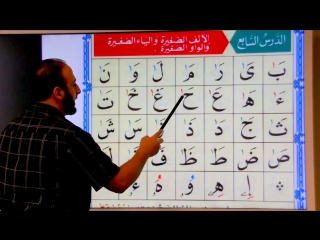 الدرس السابع
الألف الصغيرة والياء الصغيرة
والواو الصغيرة
بٰ یٰ رٰ مٰ لٰ وٰ نٰ
ءٰ هٰ عٰ حٰ غٰ خٰ تٰ
ثٰ جٰ دٰ ذٰ سٰ شٰ
صٰ ضٰ طٰ ظٰ فٰ قٰ